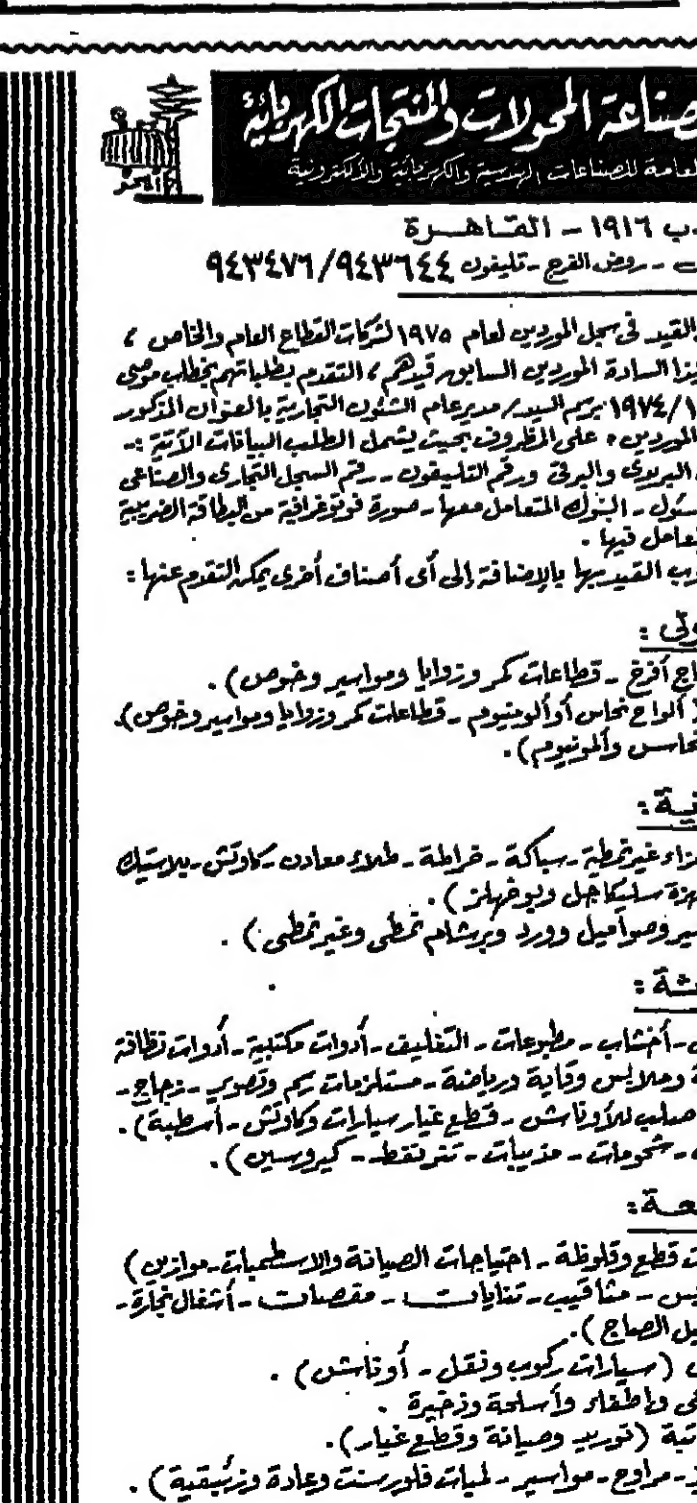 صناعة المحولات والمنتجات الكهربائية
العامة للصناعات الهندسية والكهربائية والألكترونية
الماكو
ب ١٩١٦ - القاهرة
- روض الفرج - تليفون ٩٤٣٦٤٤/٩٤٣٤٧٦
القيد فى سجل الموردين لعام ١٩٧٥ لشركات القطاع العام والخاص ،
السادة الموردين السابق قيدهم ، التقدم بطلباتهم بخطاب موصى
١٩٧٤/١ بريم السيد / مدير عام الشئون التجارية بالعنوان المذكور
الموردين » على المظروف بحيث يشمل الطلب البيانات الآتية :-
البريدى والبرقى ورقم التليفون - رقم السجل التجارى والصناعى
سئول - البنوك المتعامل معها - صورة فوتوغرافية من البطاقة الضريبية
تعامل فيها .
القيد بها بالإضافة إلى أى أصناف أخرى يمكن التقدم عنها :
ولى :
أفرخ - قطاعات كمر وزوايا ومواسير وخوص ) .
ألواح نحاس أو ألومنيوم - قطاعات كمر وزوايا ومواسير وخوص ) .
نحاس وألمونيوم ) .
نية :
زاء غير نمطية - سباكة - خراطة - طلاء معادن - كاوتش - بلاستيك
هزة سليكاجل وبوخهلز ) .
ير وصواميل وورد وبرشام نمطى وغير نمطى ) .
ثة :
- أخشاب - مطبوعات - التغليف - أدوات مكتبية - أدوات نظافة
وملابس وقاية ورياضة - مستلزمات رسم وتصوير - زجاج -
صلب للأوناش - قطع غيار سيارات وكاوتش - أسطبة ) .
- شحومات - مذيبات - تنر نفط - كيروسين ) .
عة :
ت قطع وقلوظة - احتياجات الصيانة والاسطمبات - موازين )
- مثاقيب - تنايات - مقصات - أشغال نجارة -
يل الصاج ) .
( سيارات ركوب ونقل - أوناش ) .
وإطفاء وأسلحة وذخيرة .
تية ( توريد وصيانة وقطع غيار ) .
- مراوح - مواسير - لمبات فلورسنت وعادة وزئبقية ) .